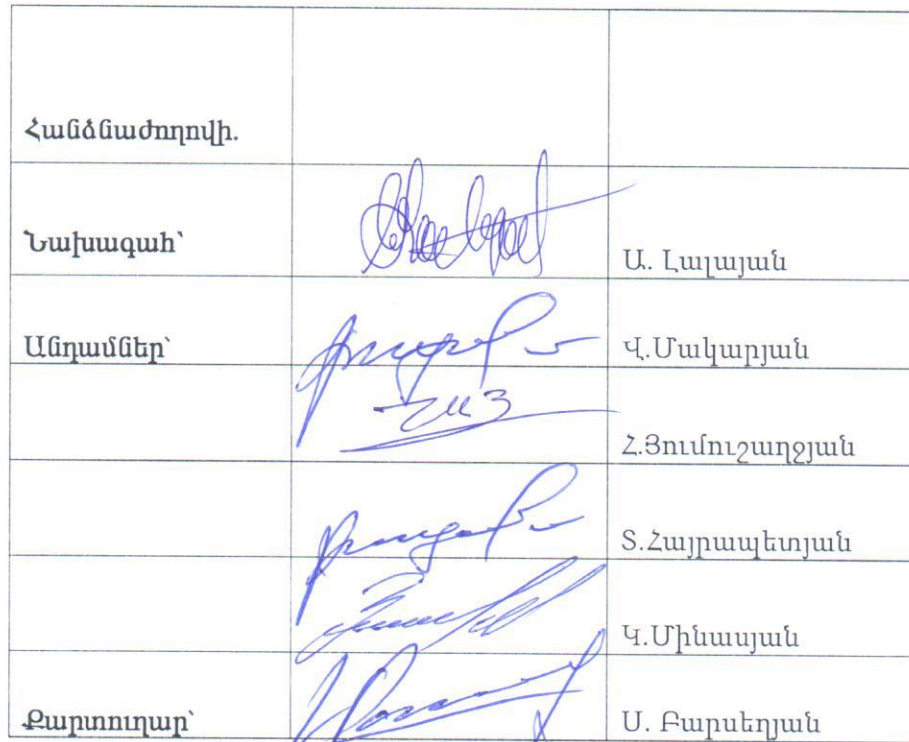 Հանձնաժողովի.
Նախագահ՝ Ա. Լալայան
Անդամներ՝ Վ.Մակարյան
Հ.Յումուշաղջյան
Տ.Հայրապետյան
Կ.Մինասյան
Քարտուղար՝ Ս. Բարսեղյան